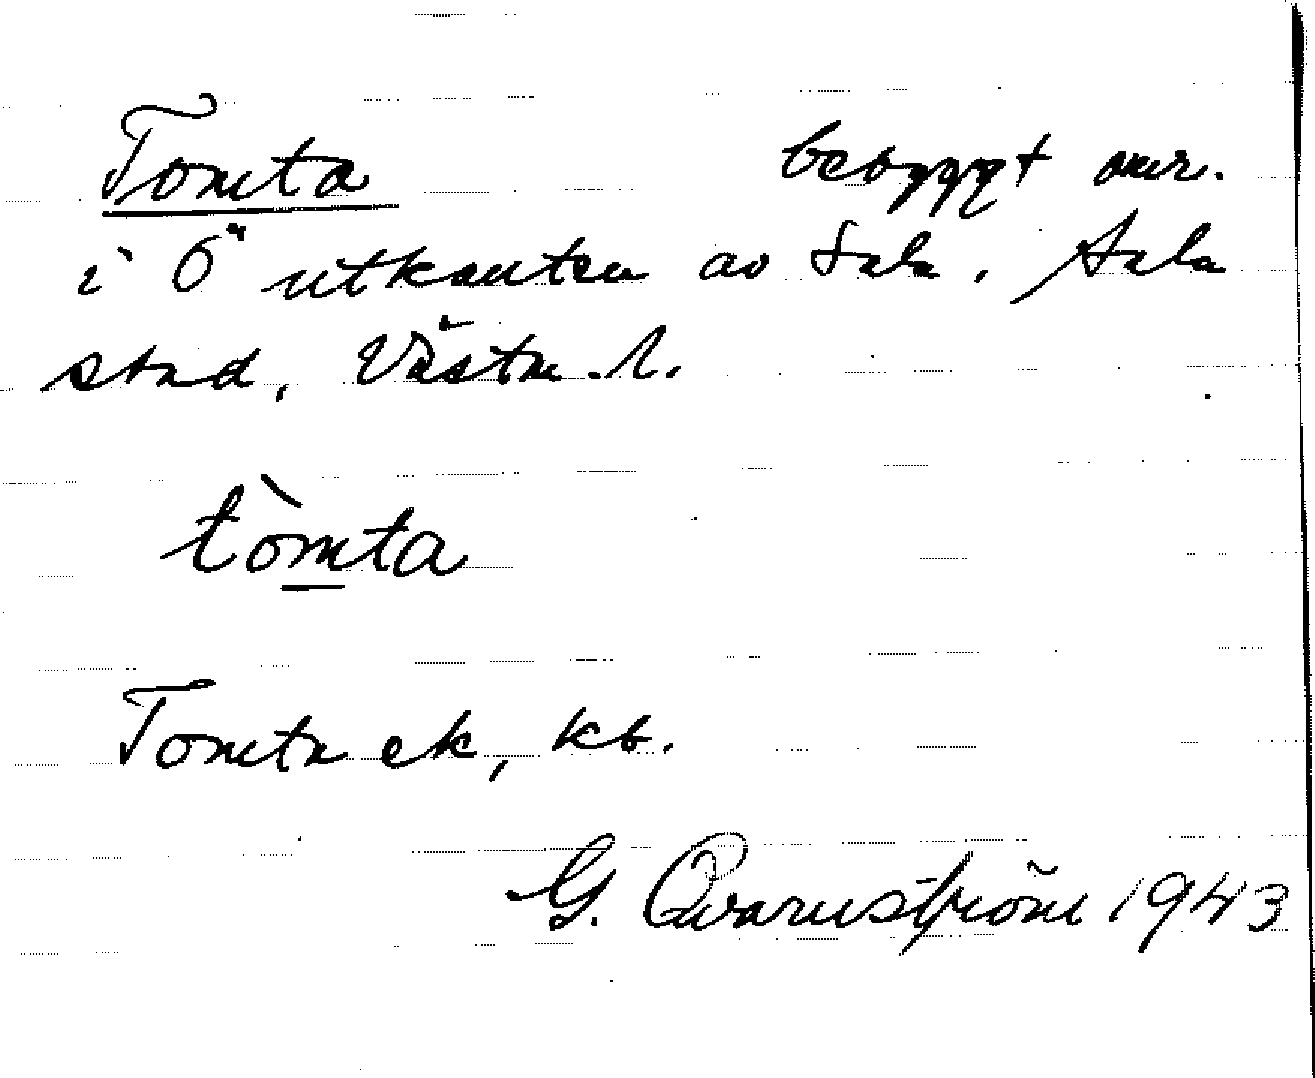 Tomta bebyggt omr.
i Ö utkanten av Sala. Sala
stad, Västm. l.
tòmta
Tomta ek, kb.
G. Qvarnström 1943